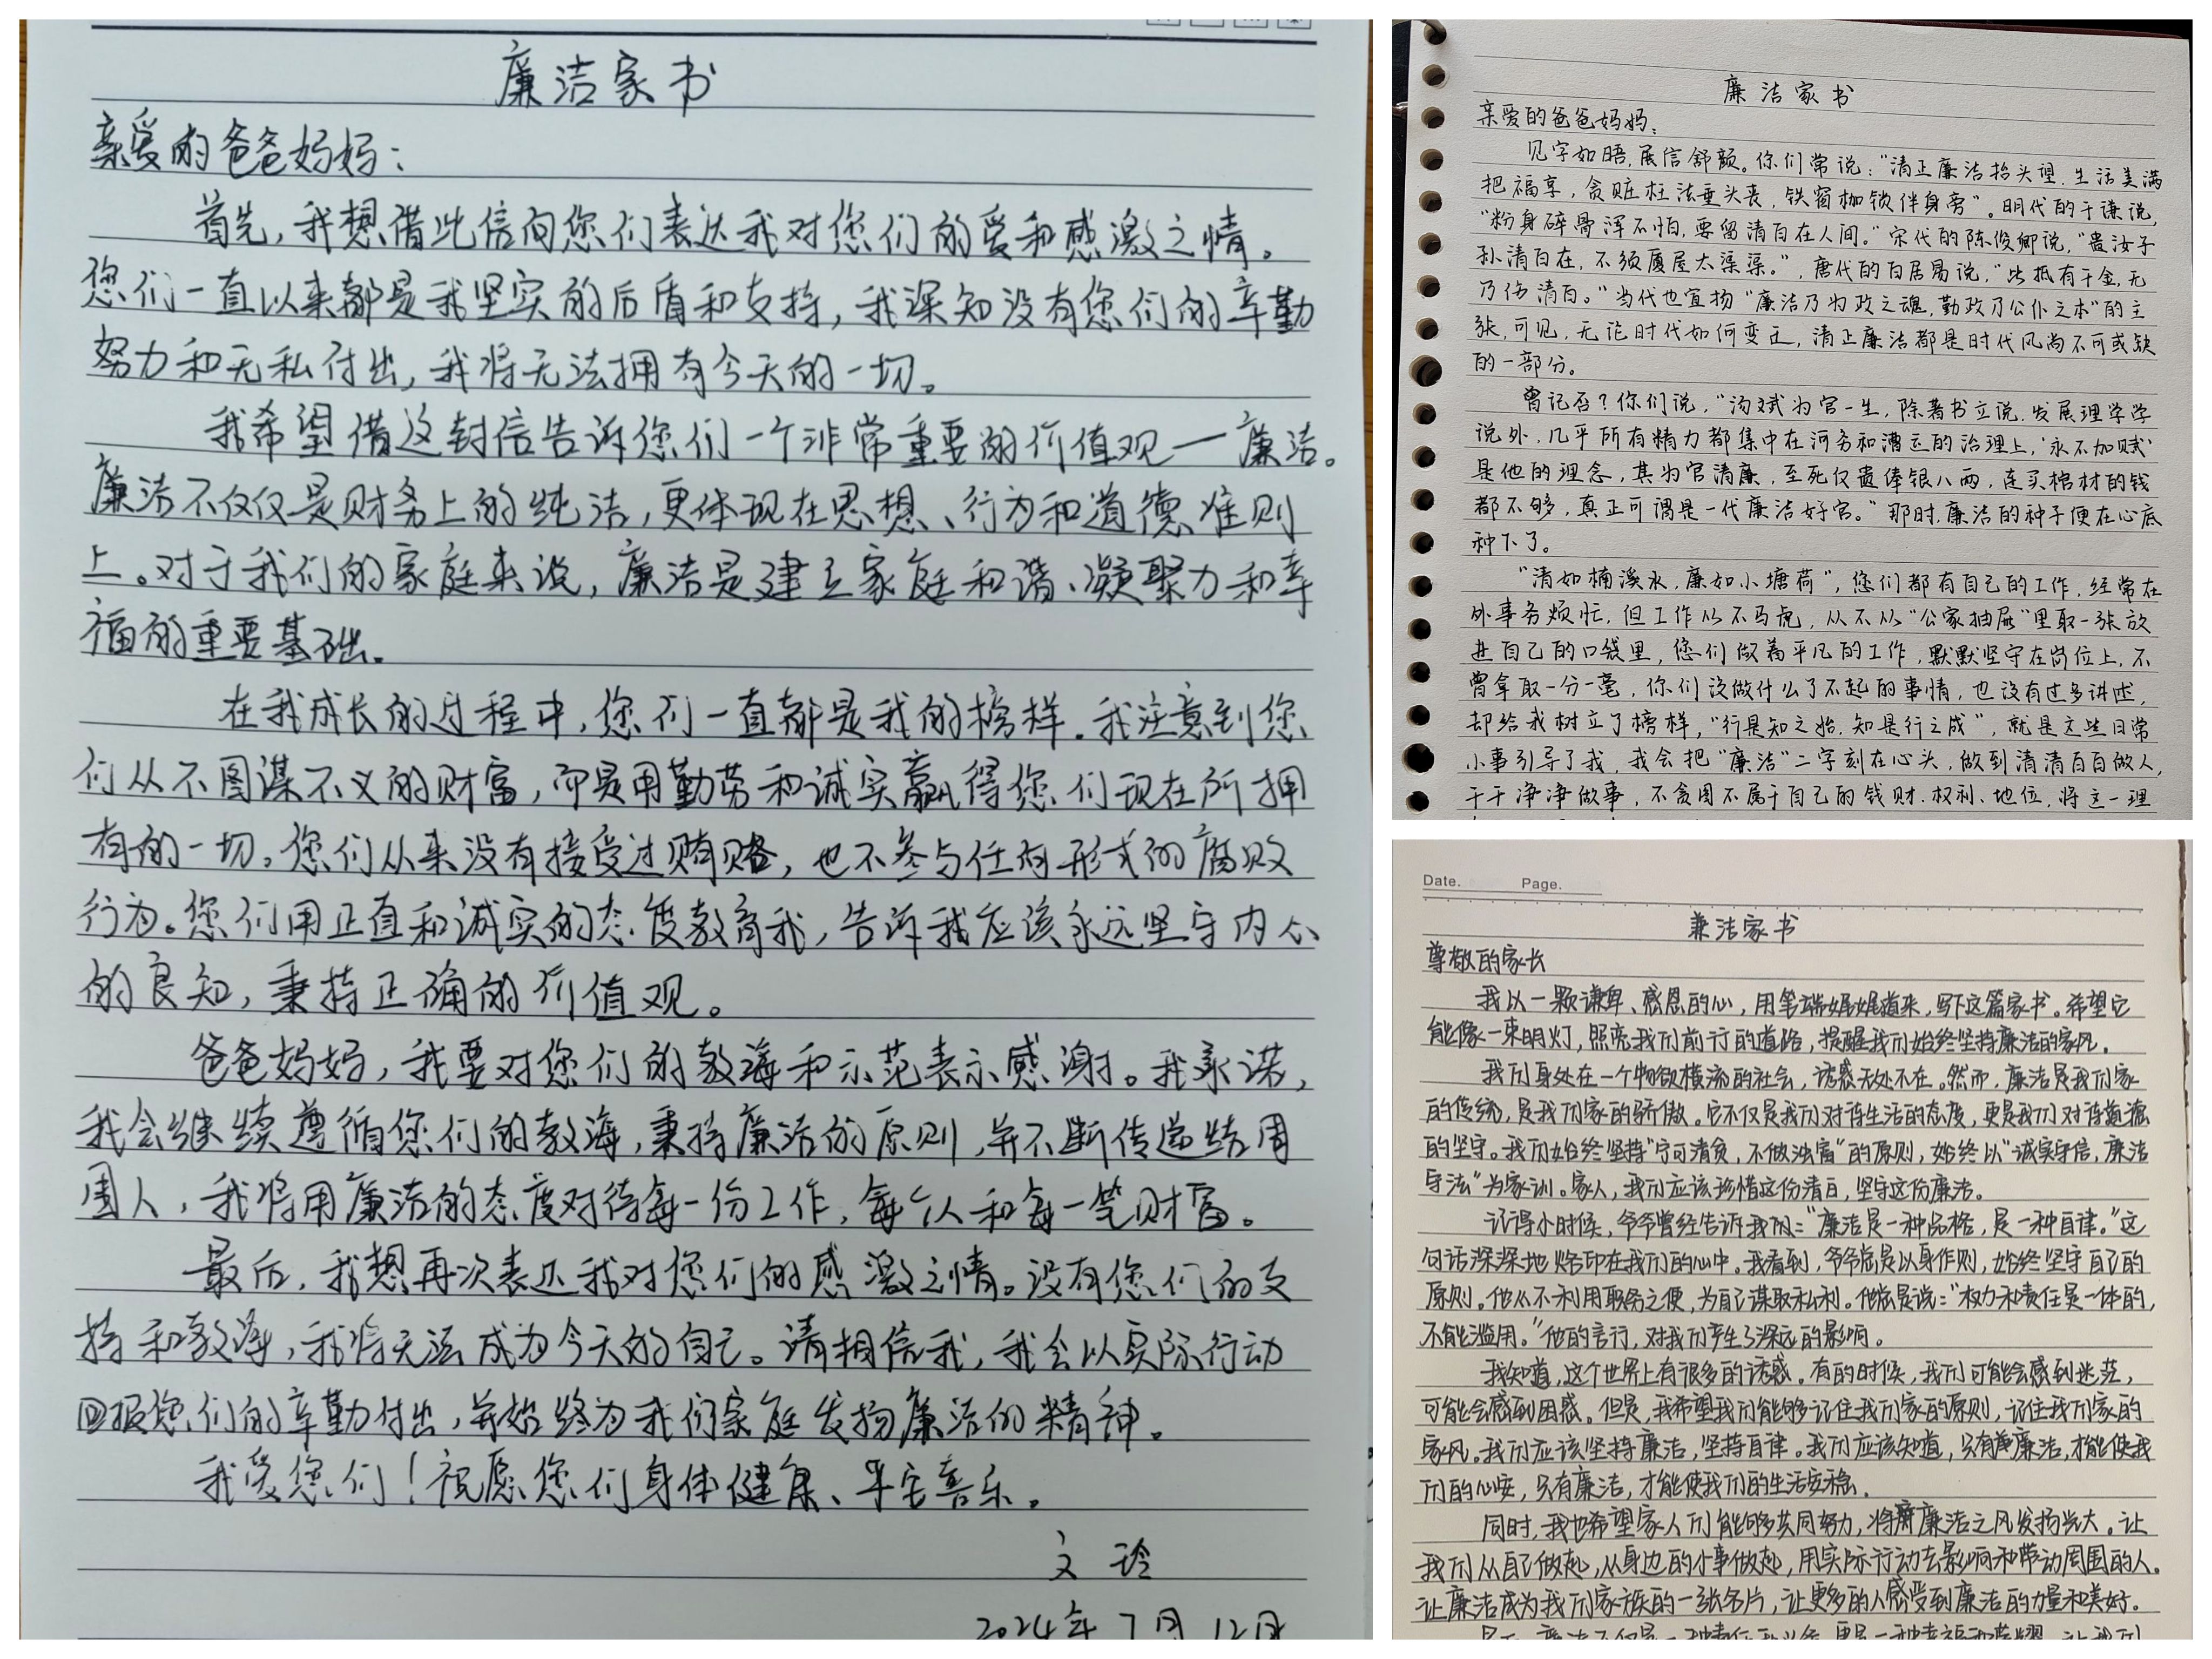 廉洁家书
亲爱的爸爸妈妈：
首先，我想借此信向您们表达我对您们的爱和感激之情。
您们一直以来都是我坚实的后盾和支持，我深知没有您们的辛勤
努力和无私付出，我将无法拥有今天的一切。
我希望借这封信告诉您们一个非常重要的价值观—廉洁。
廉洁不仅仅是财务上的纯洁，更体现在思想、行为和道德准则
上。对于我们的家庭来说，廉洁是建立家庭和谐、凝聚力和幸
福的重要基础。
在我成长的过程中，您们一直都是我的榜样。我注意到您
们从不图谋不义的财富，而是用勤劳和诚实赢得您们现在所拥
有的一切。您们从来没有接受过贿赂，也不参与任何形式的腐败
行为。您们用正直和诚实的态度教育我，告诉我应该永远坚守内心
的良知，秉持正确的价值观。
爸爸妈妈，我要对您们的教诲和示范表示感谢。我承诺，
我会继续遵循您们的教诲，秉持廉洁的原则，并不断传递给周
围人，我将用廉洁的态度对待每一份工作，每个人和每一笔财富。
最后，我想再次表达我对您们的感激之情。没有您们的支
持和教诲，我将无法成为今天的自己。请相信我，我会以实际行动
回报您们的辛勤付出，并始终为我们家庭发扬廉洁的精神。
我爱您们！祝愿您们身体健康、平安喜乐。
文玲
2024年7月12日
廉洁家书
亲爱的爸爸妈妈：
见字如晤，展信舒颜。你们常说：“清正廉洁抬头望，生活美满
把福享，贪赃枉法垂头丧，铁窗枷锁伴身旁”。明代的于谦说，
“粉身碎骨浑不怕，要留清白在人间。”宋代的陈俊卿说，“贵汝子
孙清白在，不须厦屋太渠渠。”，唐代的白居易说，“此抵有千金，无
乃伤清白。”当代也宣扬“廉洁乃为政之魂，勤政乃公仆之本”的主
张，可见，无论时代如何变迁，清正廉洁都是时代风尚不可或缺
的一部分。
曾记否？你们说，“汤斌为官一生，除著书立说，发展理学学
说外，几乎所有精力都集中在河务和漕运的治理上，‘永不加赋’
是他的理念，其为官清廉，至死仅遗俸银八两，连买棺材的钱
都不够，真正可谓是一代廉洁好官。”那时，廉洁的种子便在心底
种下了。
“清如楠溪水，廉如小塘荷”，您们都有自己的工作，经常在
外事务烦忙，但工作从不马虎，从不从“公家抽屉”里取一张放
进自己的口袋里，您们做着平凡的工作，默默坚守在岗位上，不
曾拿取一分一毫，你们没做什么了不起的事情，也没有过多讲述，
却给我树立了榜样，“行是知之始，知是行之成”，就是这些日常
小事引导了我，我会把“廉洁”二字刻在心头，做到清清白白做人，
干干净净做事，不贪图不属于自己的钱财、权利、地位，将这一理
Date. Page.
廉洁家书
尊敬的家长
我以一颗谦卑、感恩的心，用笔端娓娓道来，写下这篇家书。希望它
能像一束明灯，照亮我们前行的道路，提醒我们始终坚持廉洁的家风。
我们身处在一个物欲横流的社会，诱惑无处不在。然而，廉洁是我们家
的传统，是我们家的骄傲。它不仅是我们对待生活的态度，更是我们对待道德
的坚守。我们始终坚持“宁可清贫，不做浊富”的原则，始终以“诚实守信，廉洁
守法”为家训。家人，我们应该珍惜这份清白，坚守这份廉洁。
记得小时候，爷爷曾经告诉我们：“廉洁是一种品格，是一种自律。”这
句话深深地烙印在我们的心中。我看到，爷爷总是以身作则，始终坚守自己的
原则。他从不利用职务之便，为自己谋取私利。他总是说：“权力和责任是一体的，
不能滥用。”他的言行，对我们产生了深远的影响。
我知道，这个世界上有很多的诱惑。有的时候，我们可能会感到迷茫，
可能会感到困惑。但是，我希望我们能够记住我们家的原则，记住我们家的
家风。我们应该坚持廉洁，坚持自律。我们应该知道，只有廉洁，才能使我
们的心安，只有廉洁，才能使我们的生活安稳。
同时，我也希望家人们能够共同努力，将廉洁之风发扬光大。让
我们从自己做起，从身边的小事做起，用实际行动去影响和带动周围的人。
让廉洁成为我们家族的一张名片，让更多的人感受到廉洁的力量和美好。